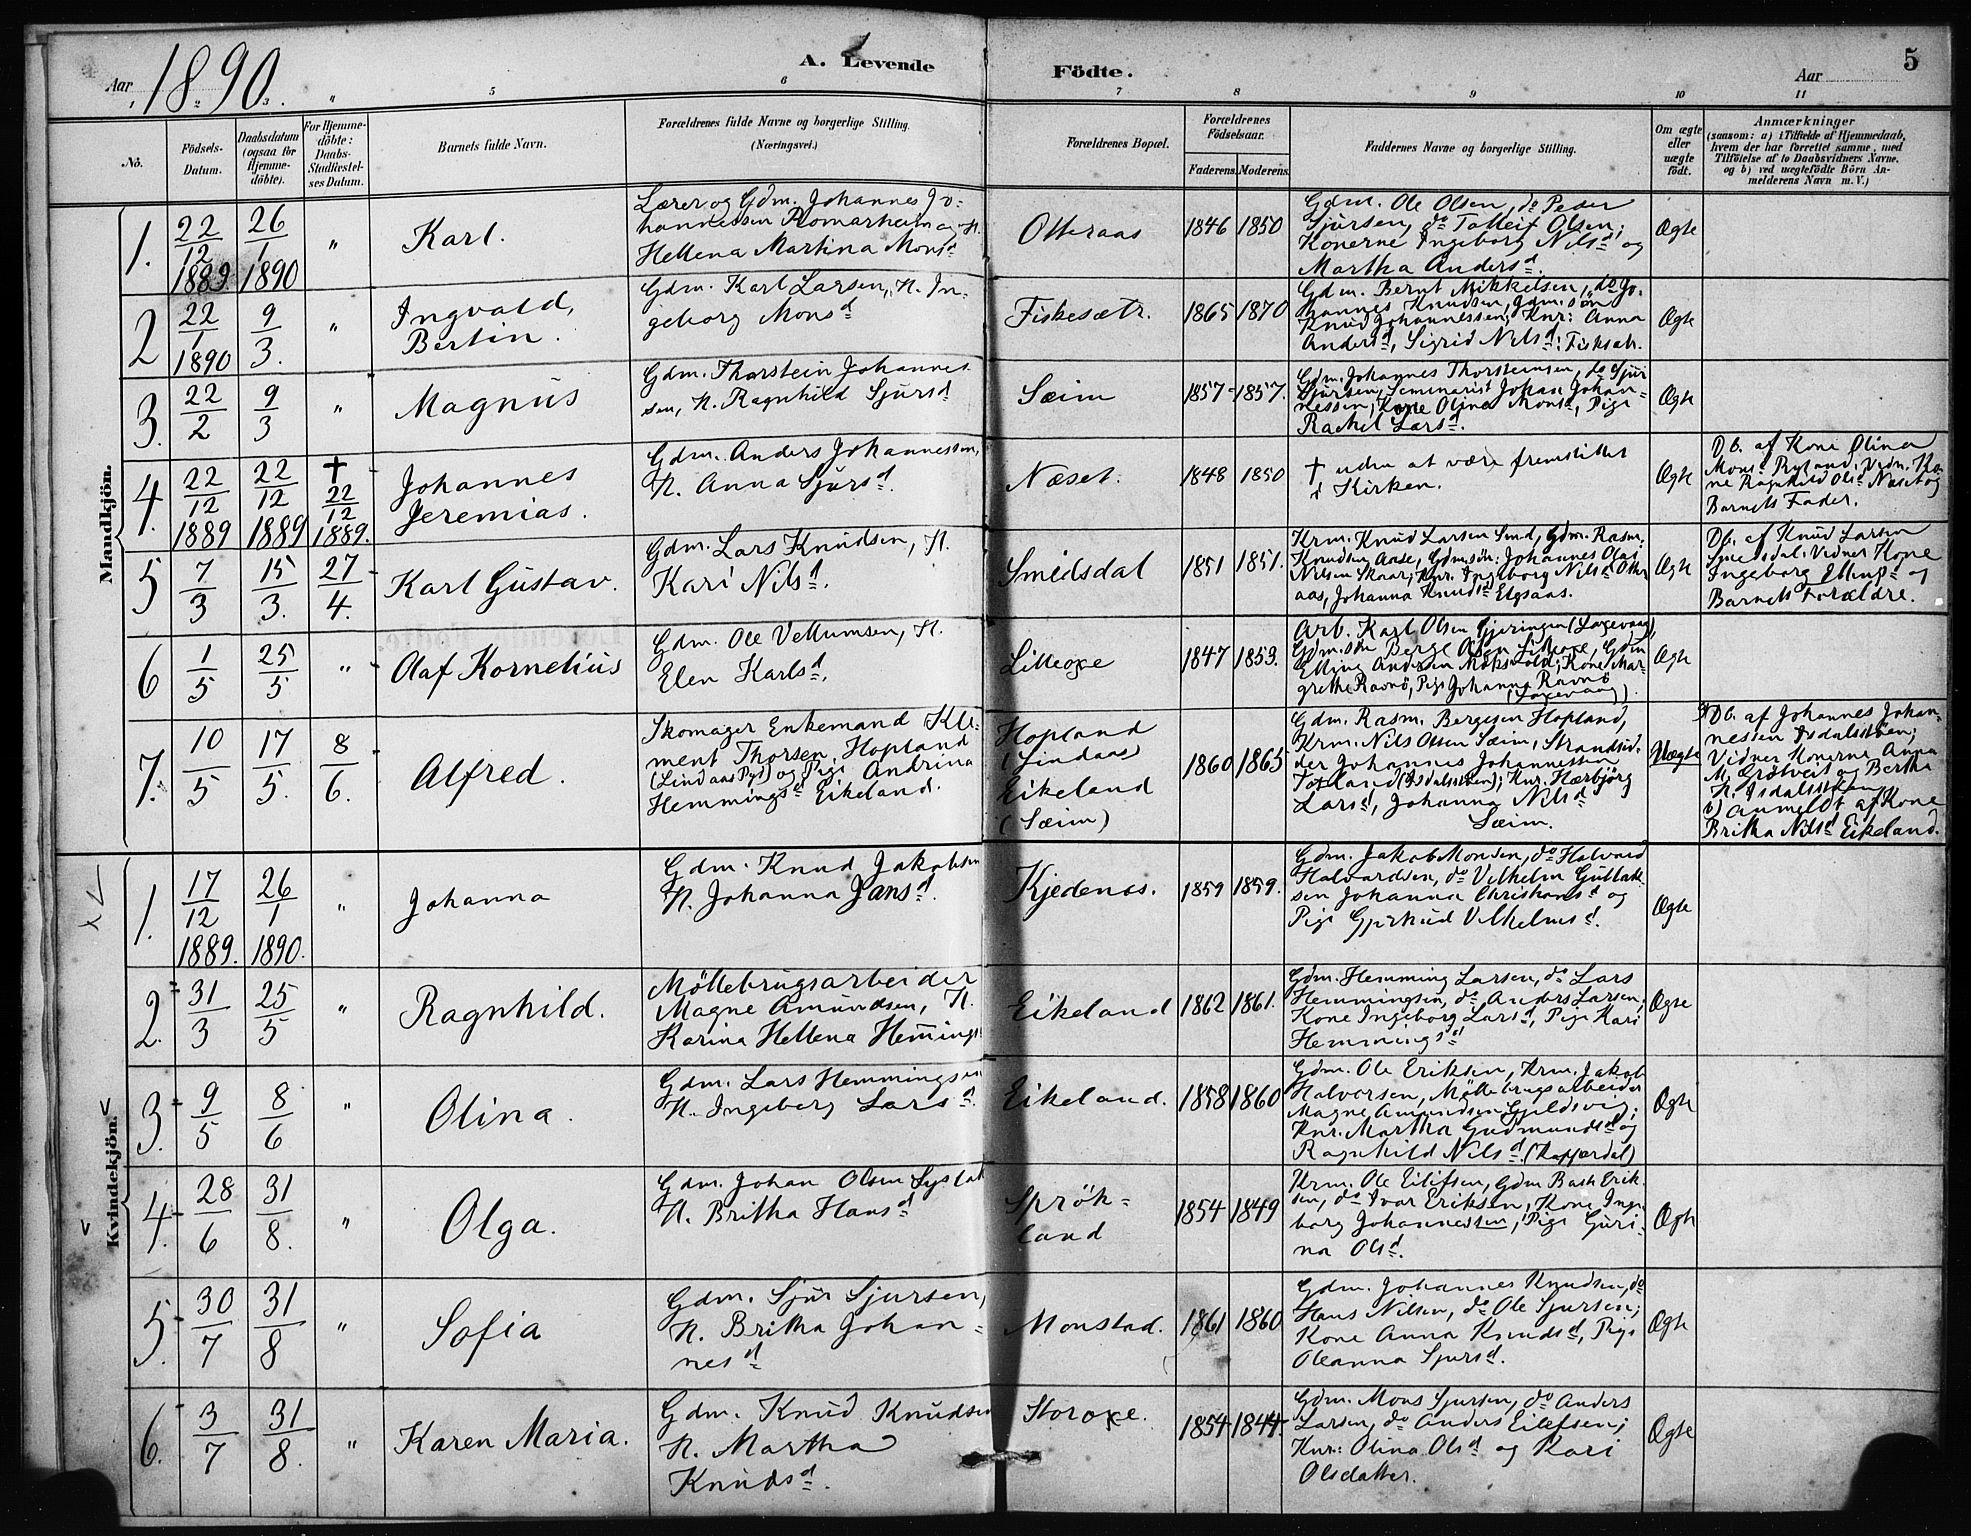 Aar 1890. A. Levende Födte. Aar 5
1 2 3 4 5 6 7 8 9 10 11
No. Födsels-Datum. Daabsdatum (ogsaa för Hjemme-döbte). For Hjemme-döbte: Daabs-Stadfæstel-ses Datum. Barnets fulde Navn. Forældrenes fulde Navne og borgerlige Stilling. (Næringsvei.) Forældrenes Bopæl. Forældrenes Födselsaar. Faderens. Moderens. Faddernes Navne og borgerlige Stilling. Om ægte eller uægte födt. Anmærkninger
(saasom: a) i Tilfælde af Hjemmedaab, hvem der har forrettet samme, med Tilföielse af to Daabsvidners Navne, og b) ved uægtefödte Börn An-melderens Navn m. V.)
Mandkjön.
1. 22/12 1889 26/1 1890 " Karl.
Lærer og Gdm. Johannes Jo-
hannessen Romarheim og K.
Hellena Martina Monsd
Otteraas 1846 1850
Gdm. Ole Olsen, do Peder
Sjursen, do Tolleif Olsen;
Konerne Ingeborg Nilsd og
Martha Andersd.
Ægte
2 22/1 1890 9/3. " Ingvald,
Bertin.
Gdm. Karl Larsen, K. In-
geborg Monsd
Fiskesætr. 1865 1870
Gdm. Bernt Mikkelsen, do Jo-
hannes Knudsen, Gdm.sön
Knud Johannessen; Knr: Anna
Andersd, Sigrid Nilsd. Fisksætr.
Ægte
3. 22/2 9/3 " Magnus
Gdm. Thorstein Johannes
sen, K. Ragnhild Sjursd
Sæim 1857 1857.
Gdm. Johannes Thorsteinsen, do Sjur
Sjursen, Seminarist Johan Johan-
nessen; Kone Olina Monsd, Pige
Rachel Larsd.
Ægte
4. 22/12 1889 22/12 1889 † 22/12 1889. Johannes
Jeremias.
Gdm. Anders Johannessen,
K. Anna Sjursd.
Næset. 1848 1850
† uden at være fremstillet
i Kirken.
Ægte
Db. af Kone Olina
Monsd Ryland. Vidn. Ko-
ne Ragnhild Olsd Næset og
Barnets Fader.
5 7/3 15/3. 27/4. Karl Gustav.
Gdm. Lars Knudsen, K.
Kari Nilsd.
Smidsdal 1851 1851.
Krm. Knud Larsen Smd, Gdm. Rasm.
Knudsen Aase, Gdmsön. Johannes Olai
Nilsen Skaar; Knr. Ingeborg Nilsd Otter
aas, Johanna Knudsd Elgsaas.
Ægte
Db. af Knud Larsen
Smedsdal. Vidner Kone
Ingeborg Ellingsd og
Barnets Forældre.
6 1/5 25/5 " Olaf Kornelius
Gdm. Ole Vellumsen, K.
Elen Karlsd.
Lilleoxe 1847 1853.
Arb. Karl Olsen Gjeringen (Laxevaag),
Gdm.sön Berge Olsen Lilleoxe, Gdm
Elling Andersen Mopsvold; Kone Mar-
grethe Ravnö, Pige Johanna Ravnö
(Laxevaag).
Ægte
7. 10/5 17/5. 8/6. Alfred.
Skomager Enkemand Kle-
ment Thorsen, Hopland
(Lindaas Pgt) og Pige Andrina
Hemmingsd Eikeland.
Hopland
(Lindaas)
Eikeland
(Sæim)
1860 1865
Gdm. Rasm. Bergesen Hopland,
Krm. Nils Olsen Sæim, Strandsid-
der Johannes Johannessen
Tofland (Isdalstöen); Knr. Hærbjörg
Larsd, Johanna Nilsd
Sæim.
Uægte
a) Db. af Johannes Johan-
nessen Isdalstöen;
Vidner Konerne Anna
M. Grötveit og Bertha
K. Isdalstöen
b) Anmeldt af Kone
Britha Nilsd Eikeland.
Kvindekjön.
1. 17/12 1889. 26/1 1890. " Johanna
Gdm. Knud Jakobsen
K. Johanna Jansd.
Kjedenæs. 1859 1859.
Gdm. Jakob Monsen, do Halvard
Halvardsen, do Vilhelm Gullak-
sen Johanna Christiansd og
Pige Gjertrud Vilhelmsd.
Ægte
2. 31/3 25/5 " Ragnhild.
Möllebrugsarbeider
Magne Amundsen, K.
Karina Hellena Hemmings
Eikeland 1862 1861.
Gdm. Hemming Larsen, do Lars
Hemmingsen, do Anders Larsen;
Kone Ingeborg Larsd, Pige Kari
Hemmingsd
Ægte
3. 9/5 8/6 " Olina.
Gdm. Lars Hemmingsen
K. Ingeborg Larsd.
Eikeland. 1858 1860
Gdm. Ole Eriksen, Krm. Jakob
Halvorsen, Möllebrugsarbeider
Magne Amundsen Gjeldsvig;
Knr. Martha Gudmundsd og
Ragnhild Nilsd.
Ægte
4. 28/6 31/8. " Olga.
Gdm. Johan Olsen
K. Britha Hansd
Sprök-
land
1854 1849
Krm. Ole Eilifsen, Gdm Erik-
sen, do Ivar Eriksen, Kone Inge
borg Johannessen, Pige Guri-
na Olsd.
Ægte
5. 30/7 31/8 " Sofia
Gdm. Sjur Sjursen,
K. Britha Johan-
nesd
Monstad. 1861 1860
Gdm. Johannes Knudsen, do
Hans Nilsen, do Ole Sjursen;
Kone Anna Knudsd, Pige
Oleanna Sjursd.
Ægte
6. 3/7 31/8. " Karen Maria.
Gdm. Knud Knudsen
K. Martha
Knudsd.
Storoxe. 1854 1844.
Gdm. Mons Sjursen, do Anders
Larsen, do Anders Eilefsen;
Knr: Olina Olsd og Kari
Olsdatter.
Ægte